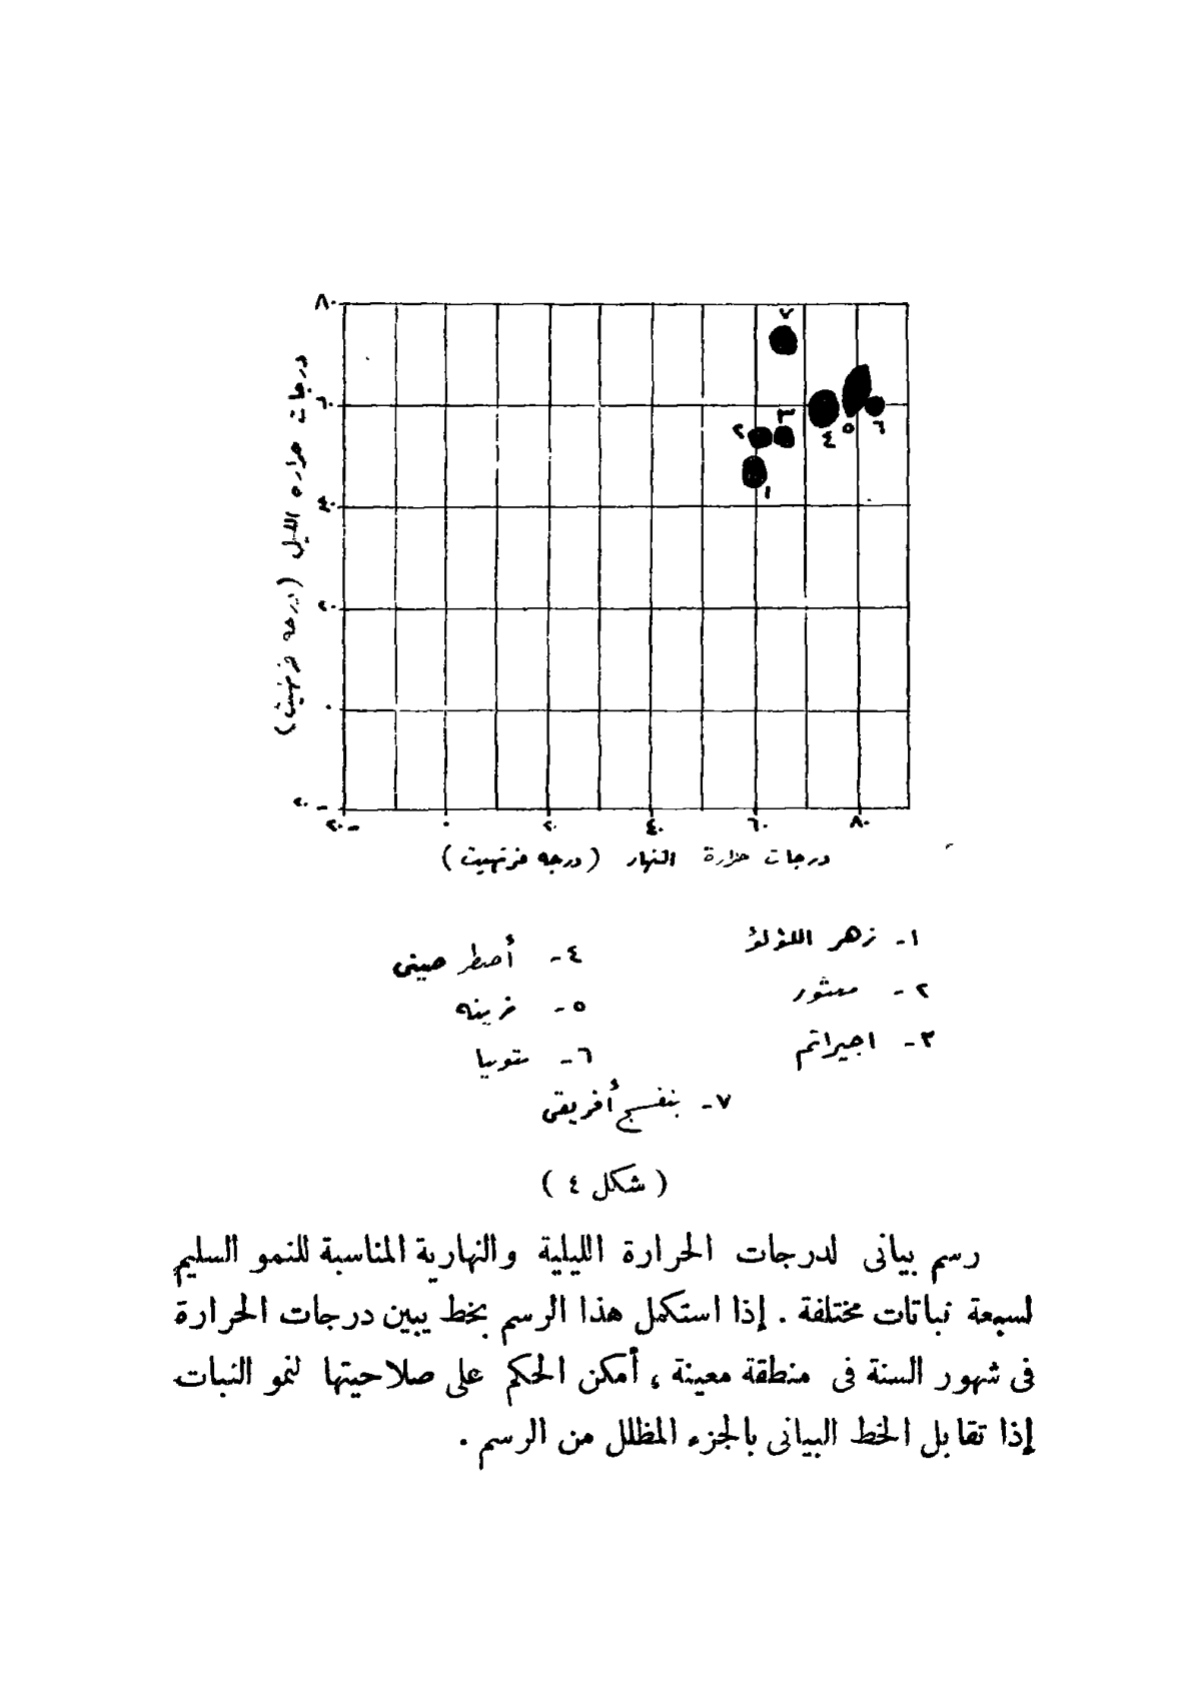 ٨٠
٦٠
٤٠
٢٠
٠
-٢٠
درجات حراره الليل (درجه فرنهيت)
٧
٦
٥
٤
٣
٢
١
-٢٠ ٠ ٢٠ ٤٠ ٦٠ ٨٠
درجات حرارة النهار (درجه فرنهيت)
١- زهر اللؤلؤ
٢- منثور
٣- اجيراتم
٤- أصطر صينى
٥- فربينه
٦- بتونيا
٧- بنفسج أفريقى
(شكل ٤)
رسم بيانى لدرجات الحرارة الليلية والنهارية المناسبة للنمو السليم
لسبعة نباتات مختلفة . إذا استكمل هذا الرسم بخط يبين درجات الحرارة
فى شهور السنة فى منطقة معينة ، أمكن الحكم على صلاحيتها لنمو النبات
إذا تقابل الخط البيانى بالجزء المظلل من الرسم .